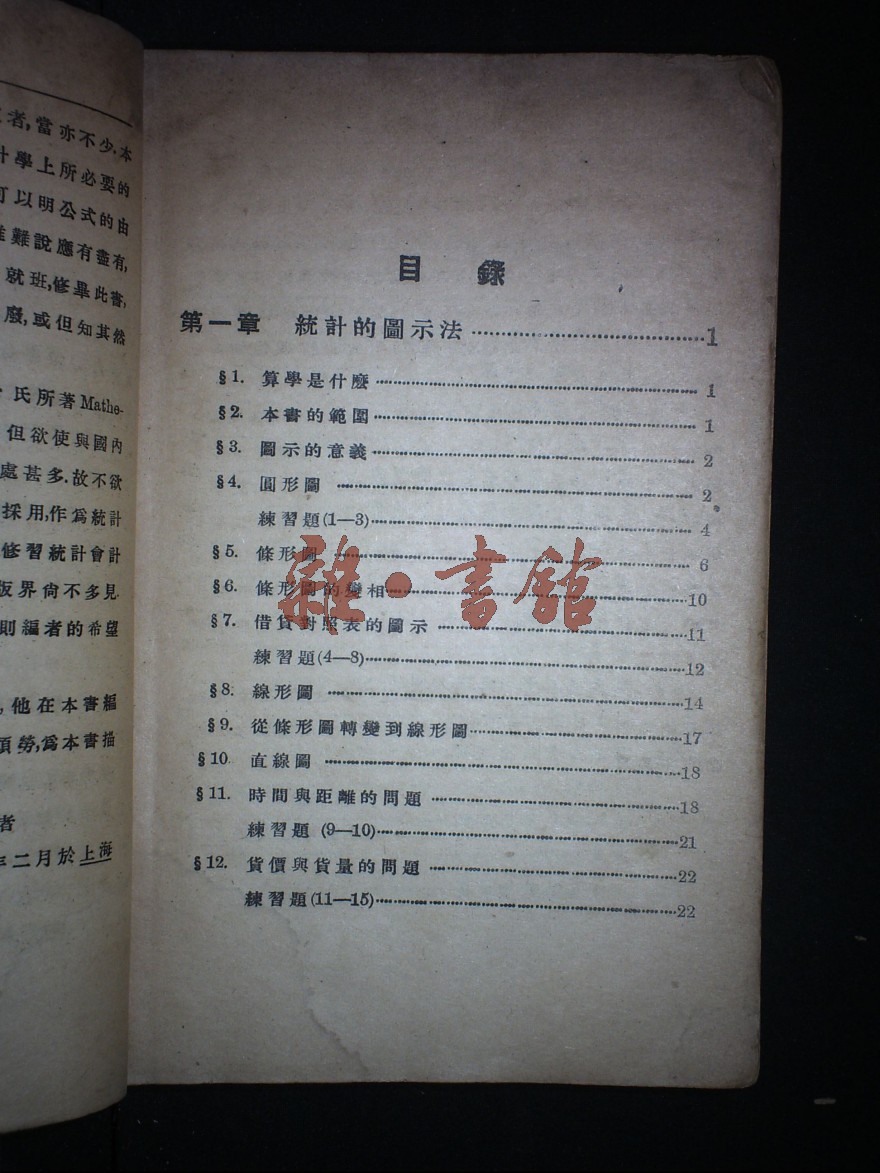 者,當亦不少.本
計學上所必要的
可以明公式的由
難說應有盡有,
就班,修畢此書,
廢,或但知其然
氏所著Mathe-
但欲使與國內
處甚多.故不欲
採用,作爲統計
修習統計會計
版界尙不多見.
則編者的希望
,他在本書編
煩勞,爲本書描
者
年二月於上海
目 錄
第一章 統計的圖示法 1
§1. 算學是什麼 1
§2. 本書的範圍 1
§3. 圖示的意義 2
§4. 圓形圖 2
練習題(1—3) 4
§5. 條形圖 6
§6. 條形圖的變相 10
§7. 借貸對照表的圖示 11
練習題(4—8) 12
§8. 線形圖 14
§9. 從條形圖轉變到線形圖 17
§10. 直線圖 18
§11. 時間與距離的問題 18
練習題(9—10) 21
§12. 貨價與貨量的問題 22
練習題(11—15) 22
雜·書館